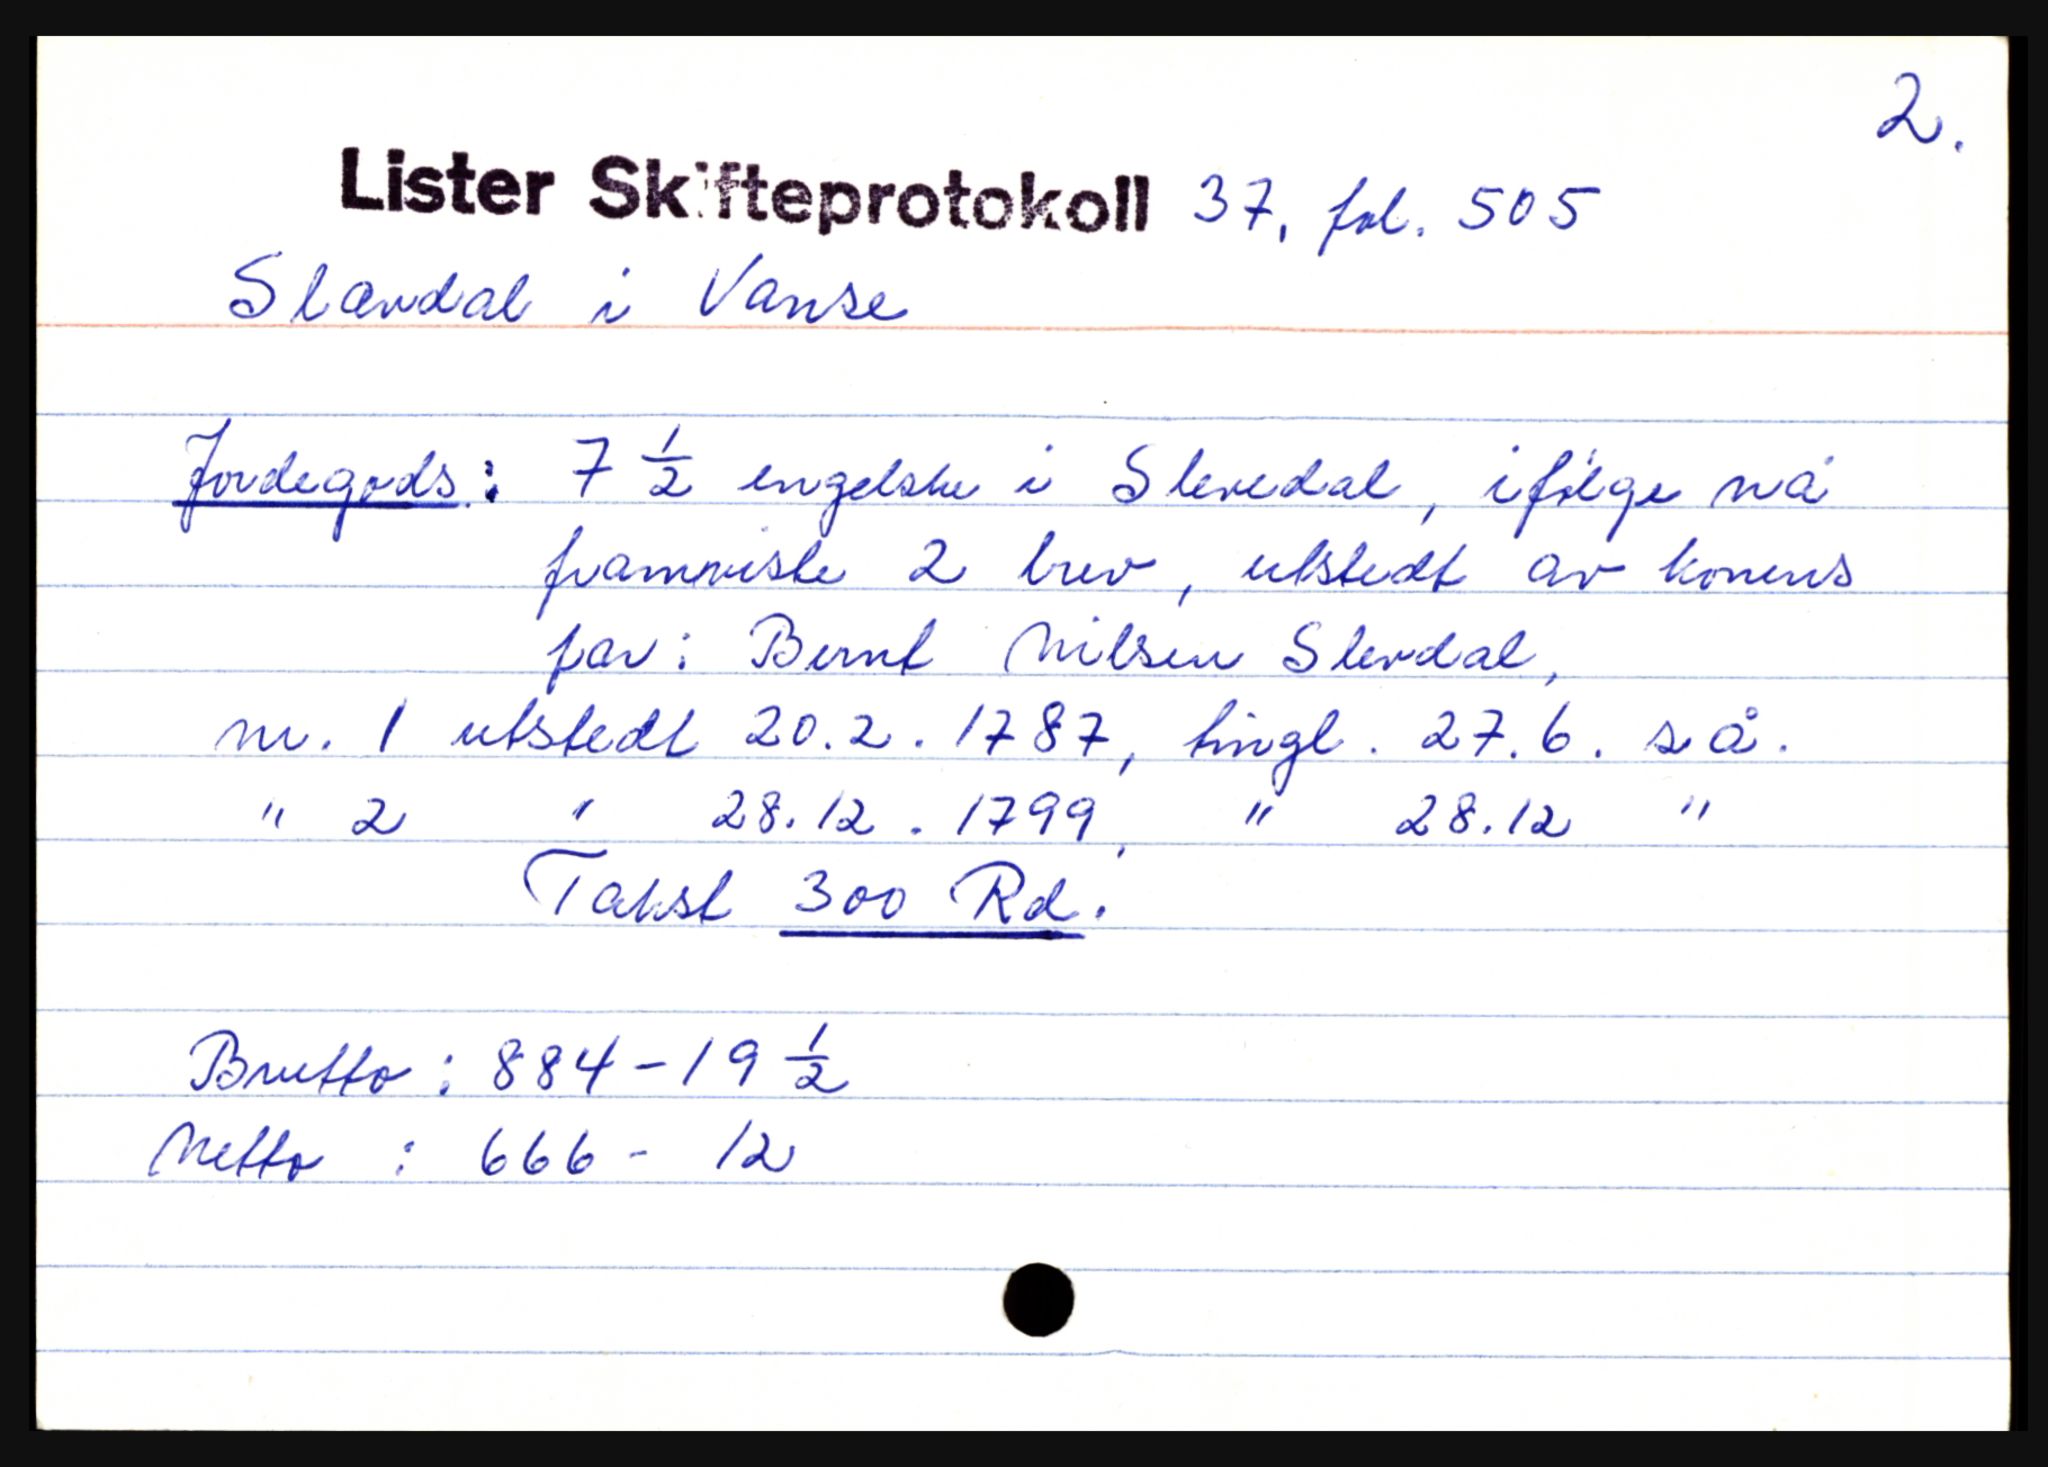 2.
Lister Skifteprotokoll 37, fol. 505
Slævdal i Vanse
Jordegods: 7 ½ engelske i Slevedal, ifølge nå
framviste 2 brev, utstedt av konens
far: Bernt Nilsen Slevdal,
nr. 1 utstedt 20.2.1787, tingl. 27.6. s å.
" 2 " 28.12.1799, " 28.12 "
Takst 300 Rd.
Brutto: 884-19 ½
Netto : 666 - 12